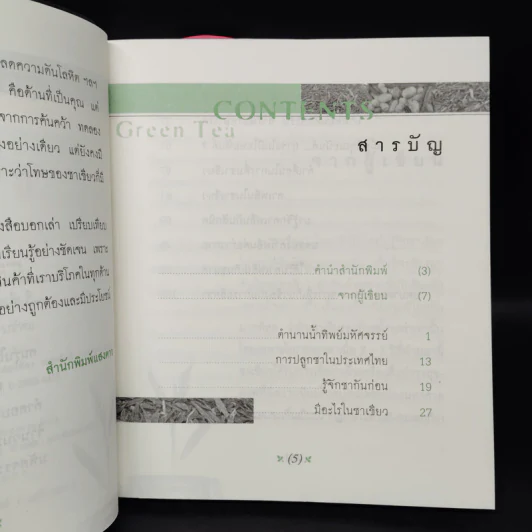 ลดความดันโลหิต ฯลฯ
คือด้านที่เป็นคุณ แต่
จากการค้นคว้า ทดลอง
งอย่างเดียว แต่ยังคงมี
าะว่าโทษของชาเขียวก็มี
งสือบอกเล่า เปรียบเทียบ
เรียนรู้อย่างชัดเจน เพราะ
สินค้าที่เราบริโภคในทุกด้าน
อย่างถูกต้องและมีประโยชน์
สำนักพิมพ์แสงดาว
CONTENTS
Green Tea
สารบัญ
คำนำสำนักพิมพ์ (3)
จากผู้เขียน (7)
ตำนานน้ำทิพย์มหัศจรรย์ 1
การปลูกชาในประเทศไทย 13
รู้จักชากันก่อน 19
มีอะไรในชาเขียว 27
(5)